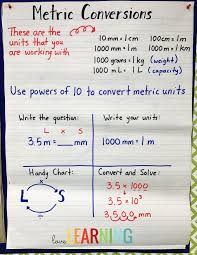 Metric Conversions
These are the
units that you
are working with
10mm = 1cm 100cm = 1m
1000mm = 1m 1000m = 1km
1000 grams = 1kg (weight)
1000 mL = 1L (capacity)
Use powers of 10 to convert metric units
Write the question:
L x S
3.5m = ___ mm
Write your units:
1000 mm = 1m
Handy Chart:
L S
Convert and Solve:
3.5 x 1000
3.5 x 10³
3,500 mm
love LEARNING